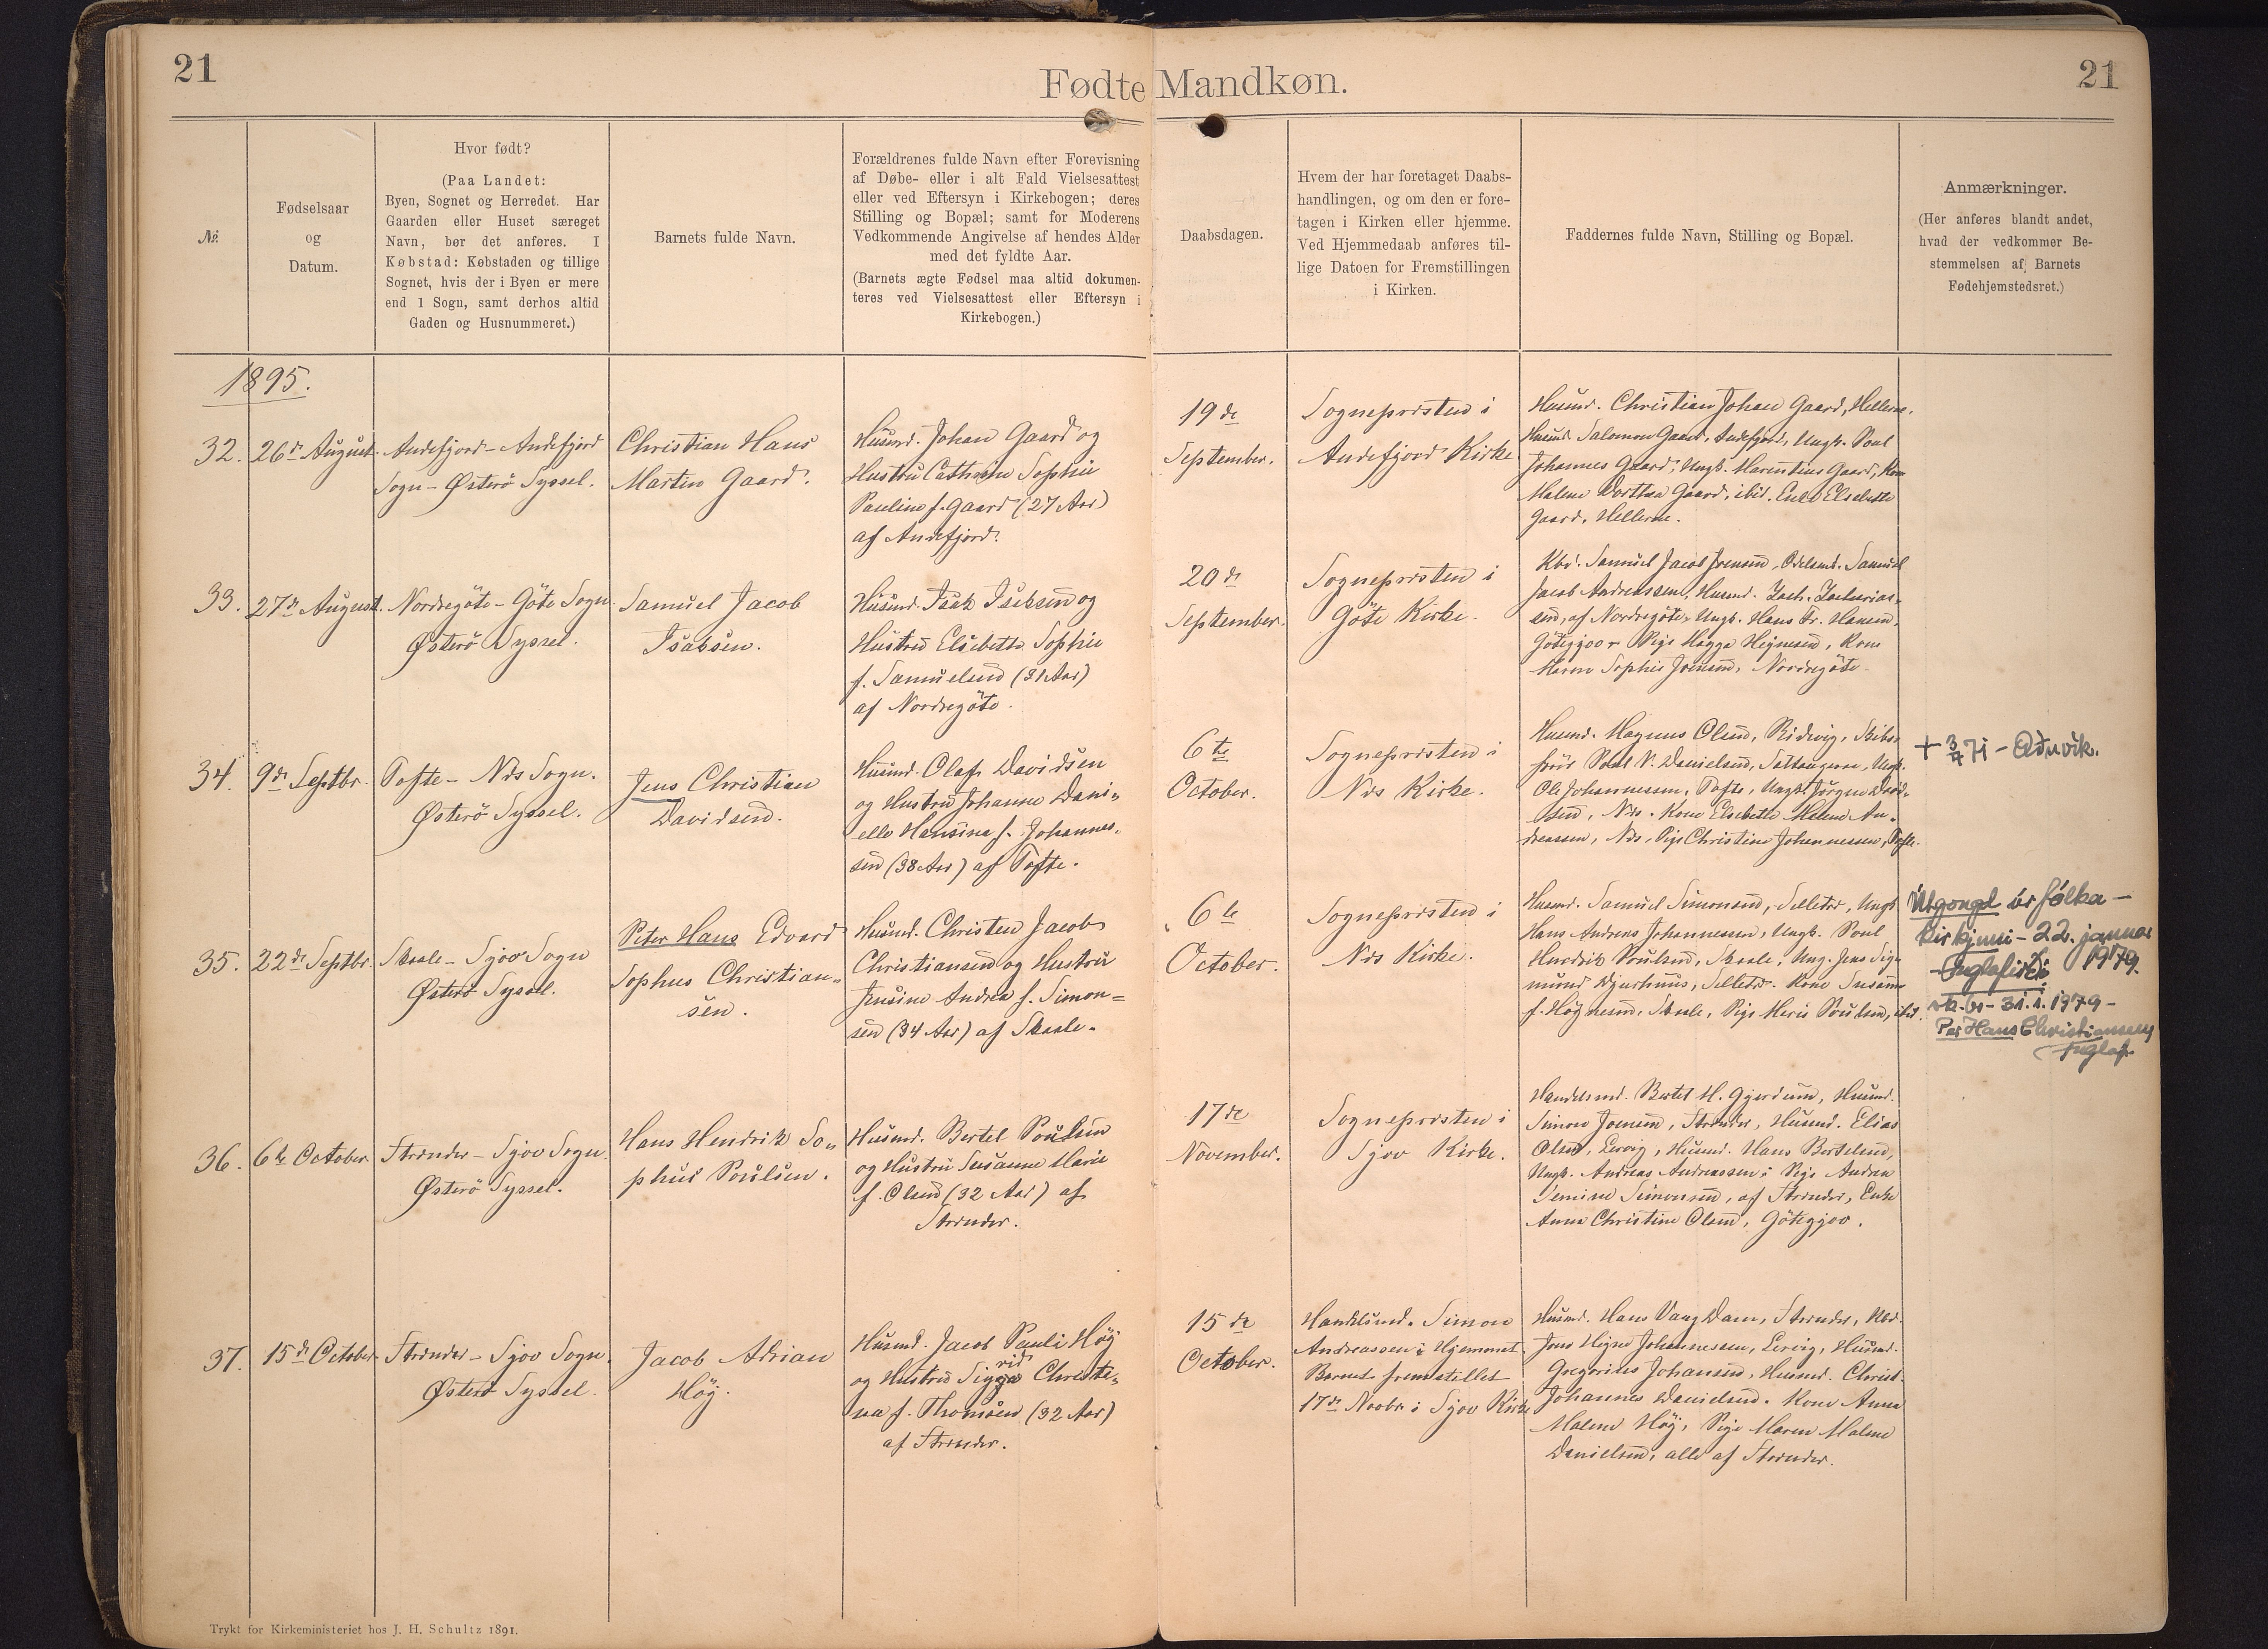 21
Fødte Mandkøn.
21
№.
Fødselsaar
og
Datum.
Hvor født?
(Paa Landet:
Byen, Sognet og Herredet. Har
Gaarden eller Huset særeget
Navn, bør det anføres. I
Købstad: Købstaden og tillige
Sognet, hvis der i Byen er mere
end 1 Sogn, samt derhos altid
Gaden og Husnummeret.)
Barnets fulde Navn.
Forældrenes fulde Navn efter Forevisning
af Døbe- eller i alt Fald Vielsesattest
eller ved Eftersyn i Kirkebogen; deres
Stilling og Bopæl; samt for Moderens
Vedkommende Angivelse af hendes Alder
med det fyldte Aar.
(Barnets ægte Fødsel maa altid dokumen-
teres ved Vielsesattest eller Eftersyn i
Kirkebogen.)
Daabsdagen.
Hvem der har foretaget Daabs-
handlingen, og om den er fore-
tagen i Kirken eller hjemme.
Ved Hjemmedaab anføres til-
lige Datoen for Fremstillingen
i Kirken.
Faddernes fulde Navn, Stilling og Bopæl.
Anmærkninger.
(Her anføres blandt andet,
hvad der vedkommer Be-
stemmelsen af Barnets
Fødehjemstedsret.)
1895.
32.
26de August.
Andefjord - Andefjord
Sogn - Østerö Syssel.
Christian Hans
Martin Gaard.
Husmd. Johan Gaard og
Hustru Cathrine Sophie
Pauline f. Gaard (27 Aar)
af Andefjord.
19de
September.
Sognepræsten i
Andefjord Kirke
Husmd. Christian Johan Gaard, Hellerne.
Husmd. Salomon Gaard, Andefjord, Ungk. Poul
Johannes Gaard, Ungk. Marentius Gaard, Kone
Malene Dorthea Gaard, ibid. Enke Elsebette
Gaard, Hellerne.
33.
27de August.
Nordregöte - Göte Sogn
Østerö Syssel.
Samuel Jacob
Isaksen.
Husmd. Isak Isaksen og
Hustru Elsebette Sophie
f. Samuelsen (31 Aar)
af Nordregöte.
20de
September.
Sognepræsten i
Göte Kirke.
Kbd. Samuel Jacob Joensen, Odelsmd. Samuel
Jacob Andreassen, Husmd. Zach. Zacharias-
sen, af Nordregöte, Ungk. Hans Fr. Hansen,
Götegjoor Pige Hegynesen, Kone
Maren Sophie Joensen, Nordregöte
34.
9de Septbr.
Tofte - Næs Sogn.
Østerö Syssel.
Jens Christian
Davidsen.
Husmd. Olaf Davidsen
og Hustru Johanne Dani-
elle Hansina f. Johannes-
sen (38 Aar) af Tofte.
6te
October.
Sognepræsten i
Næs Kirke.
Husmd. Magnus Olsen, Ridevig, Skibs-
förer Poul N. Danielsen, Saltangerne, Ungk.
Ole Johannessen, Tofte, Ungk. Jörgen David-
sen, Næs. Kone Elsebette Malene An-
dreassen, Næs, Pige Christine Johannessen, Tofte.
+ 3/4 71 -
35.
22de Septbr.
Skaale - Sjov Sogn
Østerö Syssel.
Peter Hans Edvard
Sophus Christian-
sen.
Husmd. Christen Jacob
Christiansen og Hustru
Jensine Andrea f. Simon-
sen (34 Aar) af Skaale.
6te
October.
Sognepræsten i
Næs Kirke.
Husmd. Samuel Simonsen, Selletræ, Ungk.
Hans Andreas Johannessen, Ungk. Poul
Hendrik Poulsen, Skaale, Ung. Jens Sig-
mund Djurhuus, Selletræ. Kone Susanne
f. Högnesen, Skaale, Pige Marie Poulsen, ibid.
Útgongd úr fólka-
kirkjuni - 22. januar
1979.
- 31.1.1979 -
Per Hans Christiansen
Fuglaf.
36.
6te October
Strænder - Sjov Sogn.
Østerö Syssel.
Hans Hendrik So-
phus Poulsen.
Husmd. Bertel Poulsen
og Hustru Susanne Marie
f. Olsen (32 Aar) af
Strænder.
17de
November.
Sognepræsten i
Sjov Kirke.
Handelsmd. Bertel H. Gjerdum, Husmd.
Simon Joensen, Strænder, Husmd. Elias
Olsen, Lervig, Husmd. Hans Bertelsen,
Ungk. Andreas Andreassen; Pige Andrea
Simonsen, af Strænder, Enke
Anna Christine Olsen, Götegjov.
37.
15de October
Strænder - Sjov Sogn.
Østerö Syssel.
Jacob Adrian
Höj.
Husmd. Jacob Pauli Höj
og Hustru Sigrid Christi-
na f. Thomsen (32 Aar)
af Strænder.
15de
October.
Handelsmd. Simon
Andreassen i Hjemmet.
Barnet fremstillet
17de Novbr. i Sjov Kirke
Husmd. Hans Vang Dam, Strænder, Kbd.
Jens Högne Johannessen, Lervig, Husmd.
Gregorius Johansen, Husmd. Christ.
Johannes Danielsen. Kone Anna
Malene Höj, Pige Maren Malene
Danielsen, alle af Strænder.
Trykt for Kirkeministeriet hos J. H. Schultz 1891.